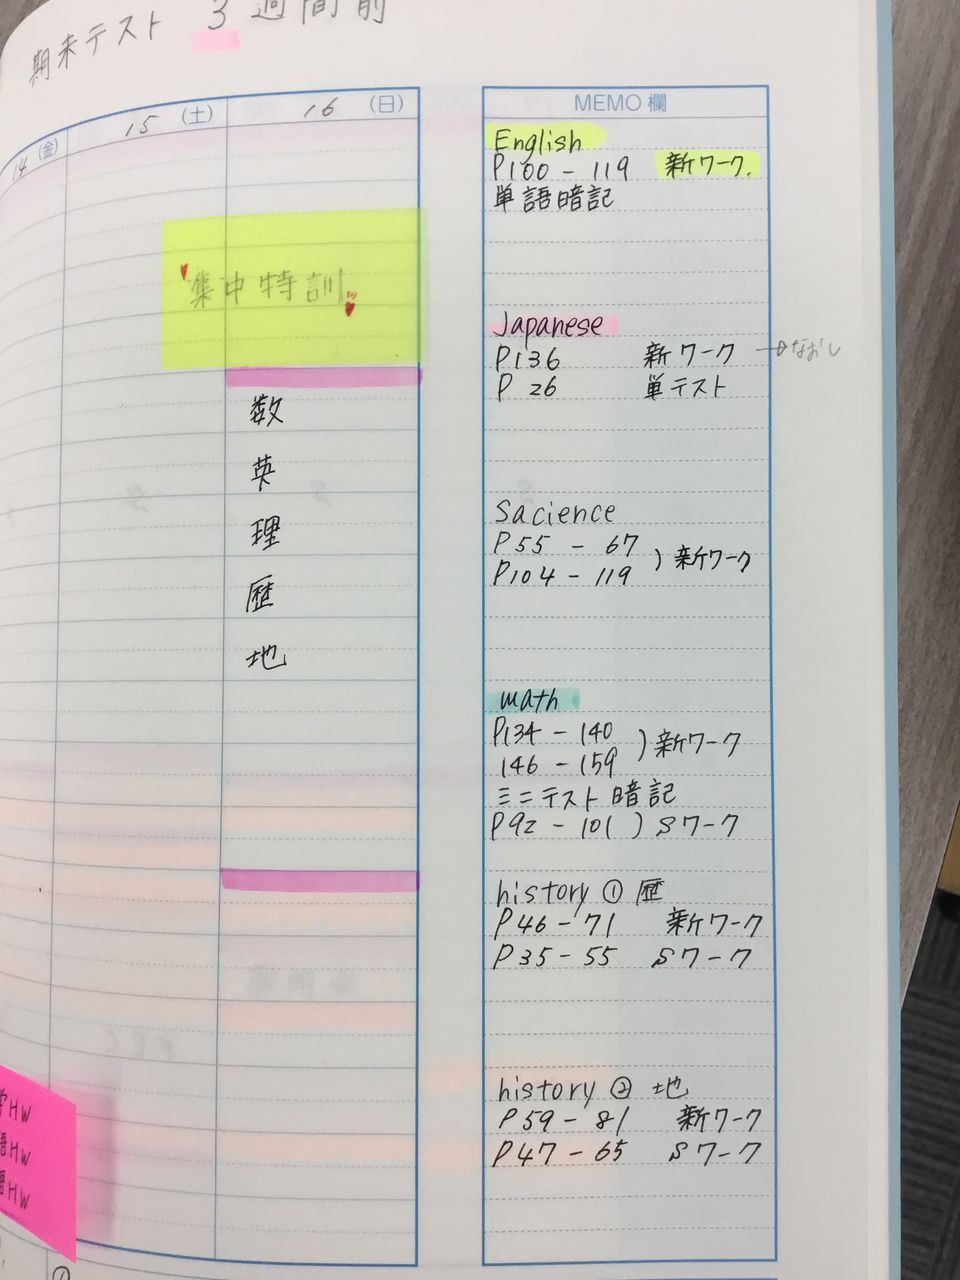 期末テスト 3週間前
14 (金)
15 (土)
16 (日)
集中特訓
数
英
理
歴
地
HW
語HW
HW
MEMO 欄
English
P100 - 119 新ワーク.
単語暗記
Japanese
P136 新ワーク →なおし
P 26 単テスト
Sacience
P55 - 67
P104 - 119 ) 新ワーク
math
P134 - 140
146 - 159 ) 新ワーク
ミニテスト 暗記
P92 - 101 ) Sワーク
history ① 歴
P46 - 71 新ワーク
P35 - 55 Sワーク
history ② 地
P59 - 81 新ワーク
P47 - 65 Sワーク